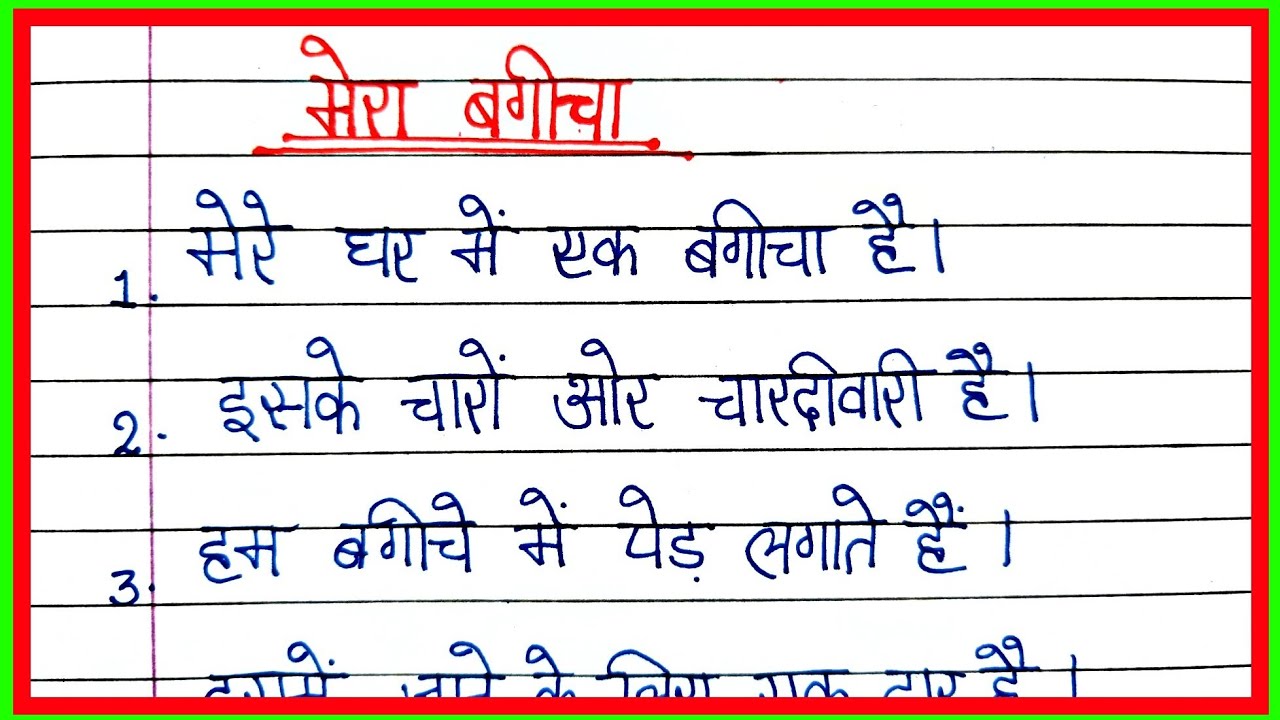 मेरा बगीचा
1. मेरे घर में एक बगीचा है।
2. इसके चारों ओर चारदीवारी है।
3. हम बगीचे में पेड़ लगाते हैं।
इसमें जाने के लिए एक द्वार है।